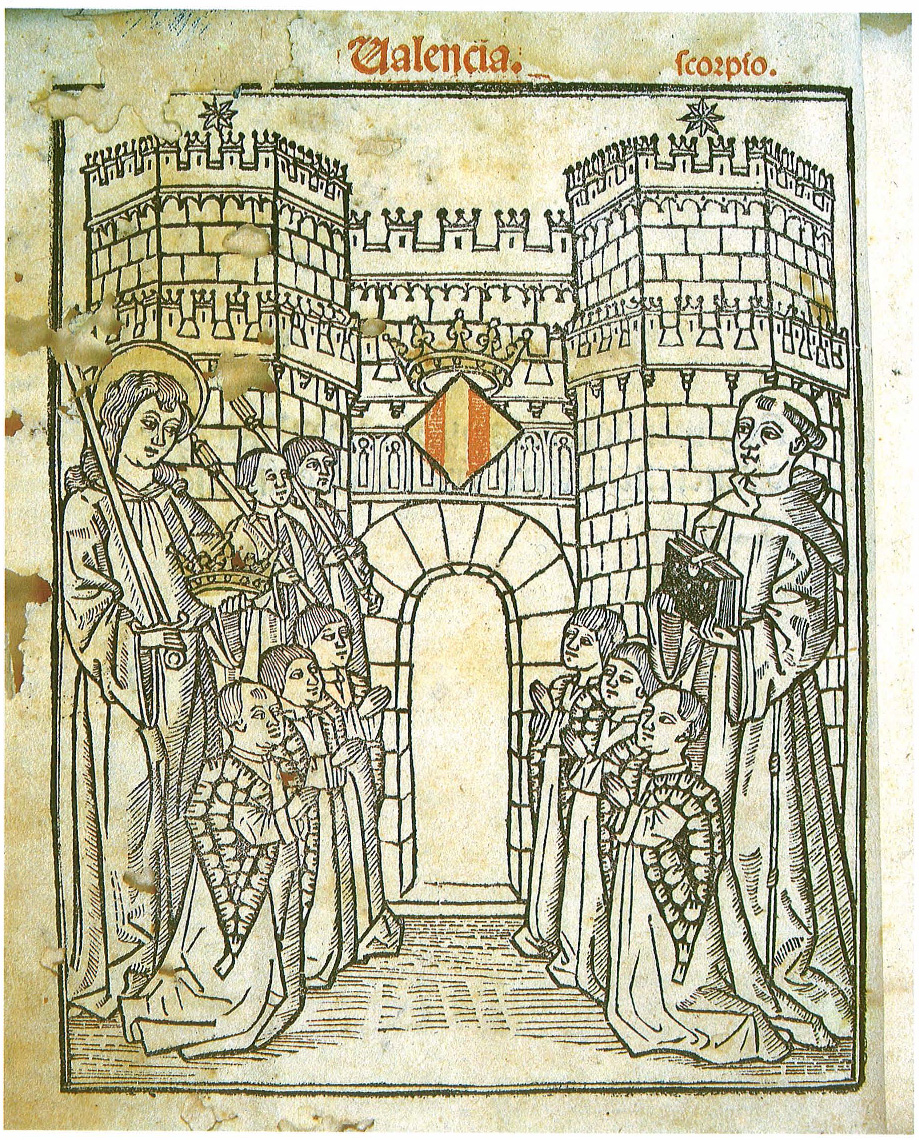 Ualencia. scorpio.